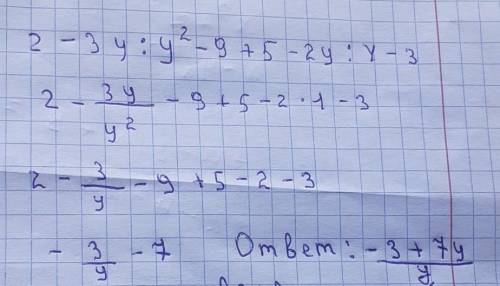 2 - 3y : y² - 9 + 5 - 2y : y - 3
2 - 3y/y² - 9 + 5 - 2 · 1 - 3
2 - 3/y - 9 + 5 - 2 - 3
- 3/y - 7 Ответ: - 3 + 7y/y